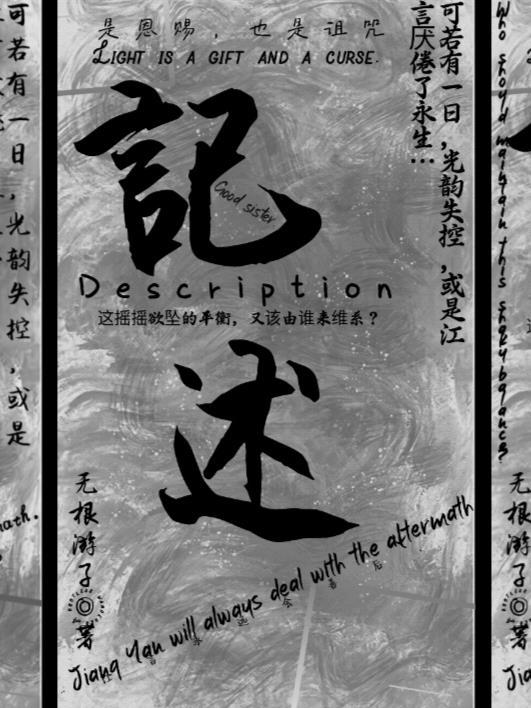 是恩赐，也是诅咒
LIGHT IS A GIFT AND A CURSE.
可若有一日，光韵失控，或是江
言厌倦了永生…
記
Good sister
Description
这摇摇欲坠的平衡，又该由谁来维系？
述
无根游子
著
Jiang Yan will always deal with the aftermath
可若有一日，光韵失控，或是
ath.
Who should maintain this shaky balance?
Jia